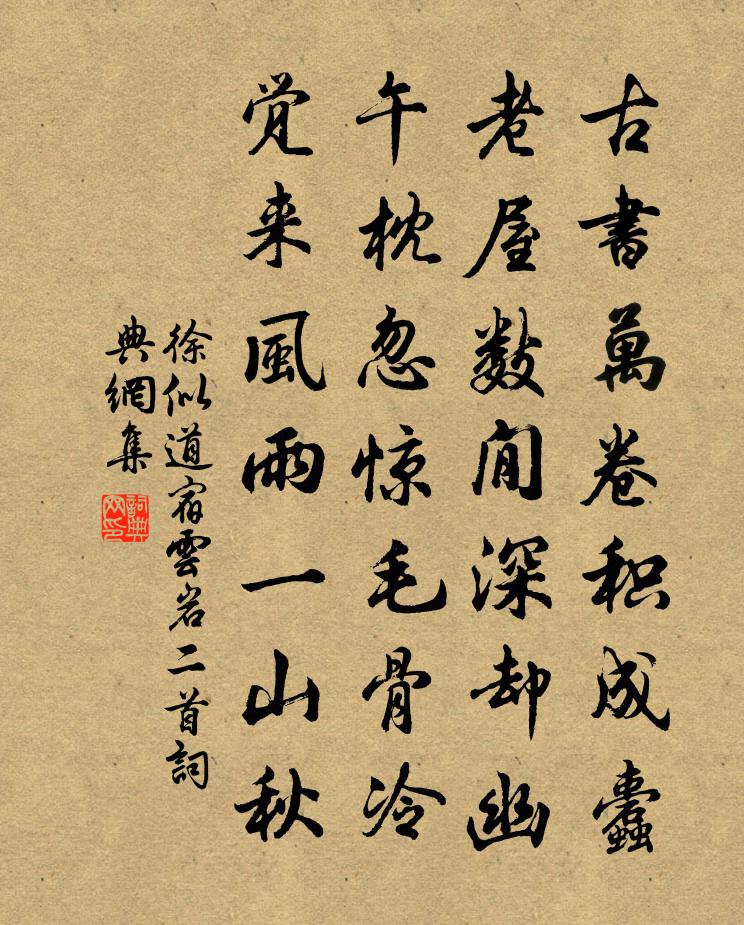 古書萬卷积成蠹
老屋数间深却幽
午枕忽惊毛骨冷
觉来風雨一山秋
徐似道宿雲岩二首詞
典網集
詞典
网印